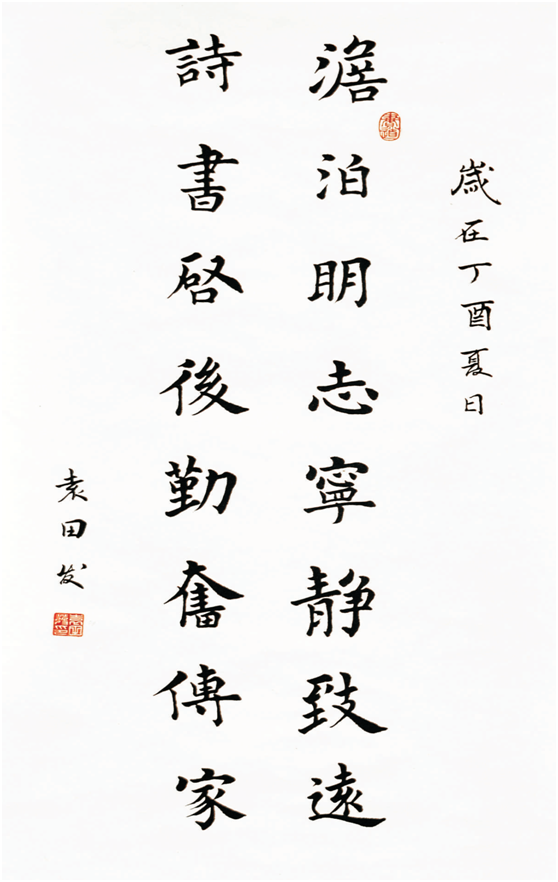 歲在丁酉夏日
澹泊明志寧静致遠
詩書啓後勤奮傳家
袁田发